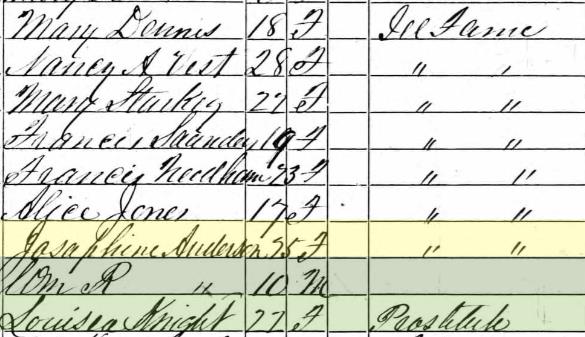 Mary Dennis 18 F Ill Fame
Nancy A Vest 28 F " "
Mary Starkey 27 F " "
Francis Saunders 19 F " "
Francis Needham 23 F " "
Alice Jones 17 F " "
Josaphine Anderson 25 F " "
Wm R " 10 M
Louisea Knight 27 F Prostitute